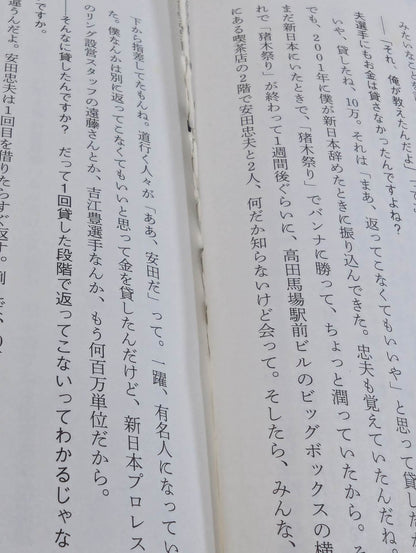 みたいなことを
──「それ、俺が教えたんだよ」って
夫選手にもお金は貸さなかったんですよね？
いや、貸したね、10万。それは「まあ、返ってこなくてもいいや」と思って貸した
でも、２００１年に僕が新日本辞めたときに振り込んできた。忠夫も覚えていたんだね。
まだ新日本にいたときで、「猪木祭り」でバンナに勝って、ちょっと潤っていたから。そ
れで「猪木祭り」が終わって１週間後ぐらいに、高田馬場駅前ビルのビッグボックスの横
にある喫茶店の２階で安田忠夫と２人、何だか知らないけど会って。そしたら、みんな、
下から指差してたもんね。道行く人々が「ああ、安田だ」って。一躍、有名人になってい
た。僕なんかは別に返ってこなくてもいいと思って金を貸したんだけど、新日本プロレス
のリング設営スタッフの遠藤さんとか、吉江豊選手なんか、もう何百万単位だから。
──そんなに貸したんですか？　だって１回貸した段階で返ってこないってわかるじゃな
ですか。
違うんだよ。安田忠夫は１回目を借りたらすぐ返す。